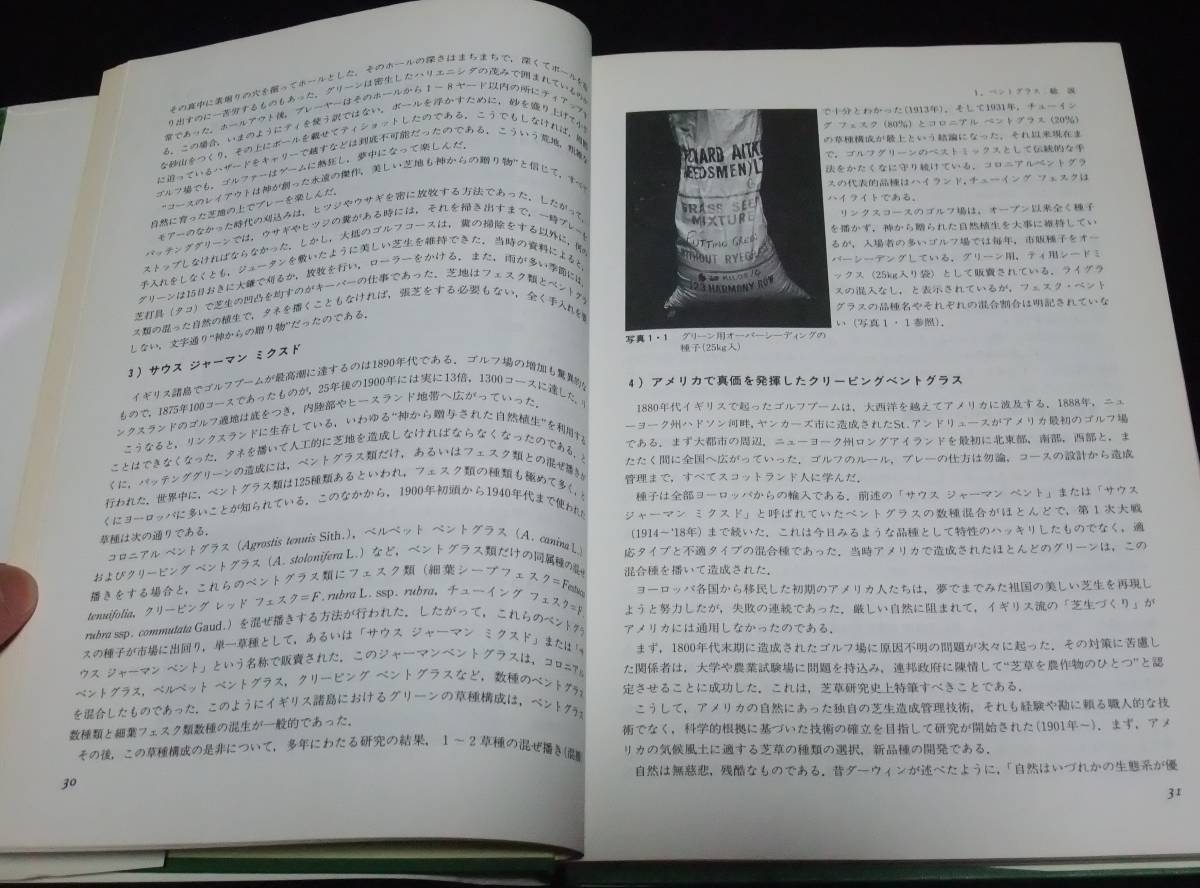 その真中に素堀りの穴を掘ってホールとした．そのホールの深さはまちまちで，深くてボールを
り出すのに一苦労するものもあった．グリーンは密生したハリエニシダの茂みで囲まれているのが
常であった．ホールアウト後，プレーヤーはそのホールから1～8ヤード以内の所にティアップ
る．この場合，いまのようにティを使う訳ではない．ボールを浮かすために，砂を盛り上げて小さ
な砂山をつくり，その上にボールを載せてティショットしたのである．こうでもしなければ，周囲
に迫っているハザードをキャリーで越すなどは到底不可能だったのである．こういう荒地，粗雑な
ゴルフ場でも，ゴルファーはゲームに熱狂し，夢中になって楽しんだ．
“コースのレイアウトは神が創った永遠の傑作，美しい芝地も神からの贈り物”と信じて，すべて
自然に育った芝地の上でプレーを楽しんだ．
モアーのなかった時代の刈込みは，ヒツジやウサギを密に放牧する方法であった．したがって，
パッティンググリーンでは，ウサギやヒツジの糞がある時には，それを掃き出すまで，一時プレーを
ストップしなければならなかった．しかし，大抵のゴルフコースは，糞の掃除をする以外に，何の
手入れをしなくとも，ジュータンを敷いたように美しい芝生を維持できた．当時の資料によると，
グリーンは15日おきに大鎌で刈るか，放牧を行い，ローラーをかける．また，雨が多い季節には，
芝打具（タコ）で芝生の凹凸を均すのがキーパーの仕事であった．芝地はフェスク類とベントグラ
ス類の混った自然の植生で，タネを播くこともなければ，張芝をする必要もない，全く手入れを要
しない，文字通り“神からの贈り物”だったのである．
3）サウス ジャーマン ミクスド
イギリス諸島でゴルフブームが最高潮に達するのは1890年代である．ゴルフ場の増加も驚異的な
もので，1875年100コースであったものが，25年後の1900年には実に13倍，1300コースに達した．リ
ンクスランドのゴルフ適地は底をつき，内陸部やヒースランド地帯へ広がっていった．
こうなると，リンクスランドに生存している，いわゆる“神から贈与された自然植生”を利用する
ことはできなくなった．タネを播いて人工的に芝地を造成しなければならなくなったのである．と
くに，パッティンググリーンの造成には，ベントグラス類だけ，あるいはフェスク類との混ぜ播きが
行われた．世界中に，ベントグラス類は125種類あるといわれ，フェスク類の種類も極めて多く，と
くにヨーロッパに多いことが知られている．このなかから，1900年初頭から1940年代まで使われた
草種は次の通りである．
コロニアル ベントグラス（Agrostis tenuis Sith.），ベルベット ベントグラス（A. canina L.）
およびクリーピング ベントグラス（A. stolonifera L.）など，ベントグラス類だけの同属種の混ぜ
播きをする場合と，これらのベントグラス類にフェスク類（細葉シープフェスク＝Festuca
tenuifolia，クリーピング レッド フェスク＝F. rubra L. ssp. rubra，チューイング フェスク＝F.
rubra ssp. commutata Gaud.）を混ぜ播きする方法が行われた．したがって，これらのベントグラ
スの種子が市場に出回り，単一草種として，あるいは「サウス ジャーマン ミクスド」または「サ
ウス ジャーマン ベント」という名称で販売された．このジャーマンベントグラスは，コロニアル
ベントグラス，ベルベット ベントグラス，クリーピング ベントグラスなど，数種のベントグラス
を混合したものであった．このようにイギリス諸島におけるグリーンの草種構成は，ベントグラス
数種類と細葉フェスク類数種の混生が一般的であった．
その後，この草種構成の是非について，多年にわたる研究の結果，1～2草種の混ぜ播き（混播）
30
1．ベントグラス／総説
CHARD AITK
EEDSMEN) LT
GRASS SEED
MIXTURE
CUTTING GREE
WITHOUT RYEG
25 KILOS
123 HARMONY ROW
写真1・1 グリーン用オーバーシーディングの
種子（25kg入）
で十分とわかった（1913年）．そして1931年，チューイン
グ フェスク（80％）とコロニアル ベントグラス（20％）
の草種構成が最上という結論になった．それ以来現在ま
で，ゴルフグリーンのベストミックスとして伝統的な手
法をかたくなに守り続けている．コロニアルベントグラ
スの代表的品種はハイランド，チューイング フェスクは
ハイライトである．
リンクスコースのゴルフ場は，オープン以来全く種子
を播かず，神から贈られた自然植生を大事に維持してい
るが，入場者の多いゴルフ場では毎年，市販種子をオー
バーシーデングしている．グリーン用，ティ用シードミ
ックス（25kg入り袋）として販売されている．ライグラ
スの混入なし，と表示されているが，フェスク・ベント
グラスの品種名やそれぞれの混合割合は明記されていな
い（写真1・1参照）．
4）アメリカで真価を発揮したクリーピングベントグラス
1880年代イギリスで起ったゴルフブームは，大西洋を越えてアメリカに波及する．1888年，ニュ
ーヨーク州ハドソン河畔，ヤンカーズ市に造成されたSt. アンドリュースがアメリカ最初のゴルフ場
である．まず大都市の周辺，ニューヨーク州ロングアイランドを最初に北東部，南部，西部と，ま
たたく間に全国へ広がっていった．ゴルフのルール，プレーの仕方は勿論，コースの設計から造成
管理まで，すべてスコットランド人に学んだ．
種子は全部ヨーロッパからの輸入である．前述の「サウス ジャーマン ベント」または「サウス
ジャーマン ミクスド」と呼ばれていたベントグラスの数種混合がほとんどで，第1次大戦
（1914～’18年）まで続いた．これは今日みるような品種として特性のハッキリしたものでなく，適
応タイプと不適タイプの混合種であった．当時アメリカで造成されたほとんどのグリーンは，この
混合種を播いて造成された．
ヨーロッパ各国から移民した初期のアメリカ人たちは，夢でまでみた祖国の美しい芝生を再現し
ようと努力したが，失敗の連続であった．厳しい自然に阻まれて，イギリス流の「芝生づくり」が
アメリカには通用しなかったのである．
まず，1800年代末期に造成されたゴルフ場に原因不明の問題が次々に起った．その対策に苦慮し
た関係者は，大学や農業試験場に問題を持込み，連邦政府に陳情して“芝草を農作物のひとつ”と認
定させることに成功した．これは，芝草研究史上特筆すべきことである．
こうして，アメリカの自然にあった独自の芝生造成管理技術，それも経験や勘に頼る職人的な技
術でなく，科学的根拠に基づいた技術の確立を目指して研究が開始された（1901年～）．まず，アメ
リカの気候風土に適する芝草の種類の選択，新品種の開発である．
自然は無慈悲，残酷なものである．昔ダーウィンが述べたように，「自然はいづれかの生態系が優
31